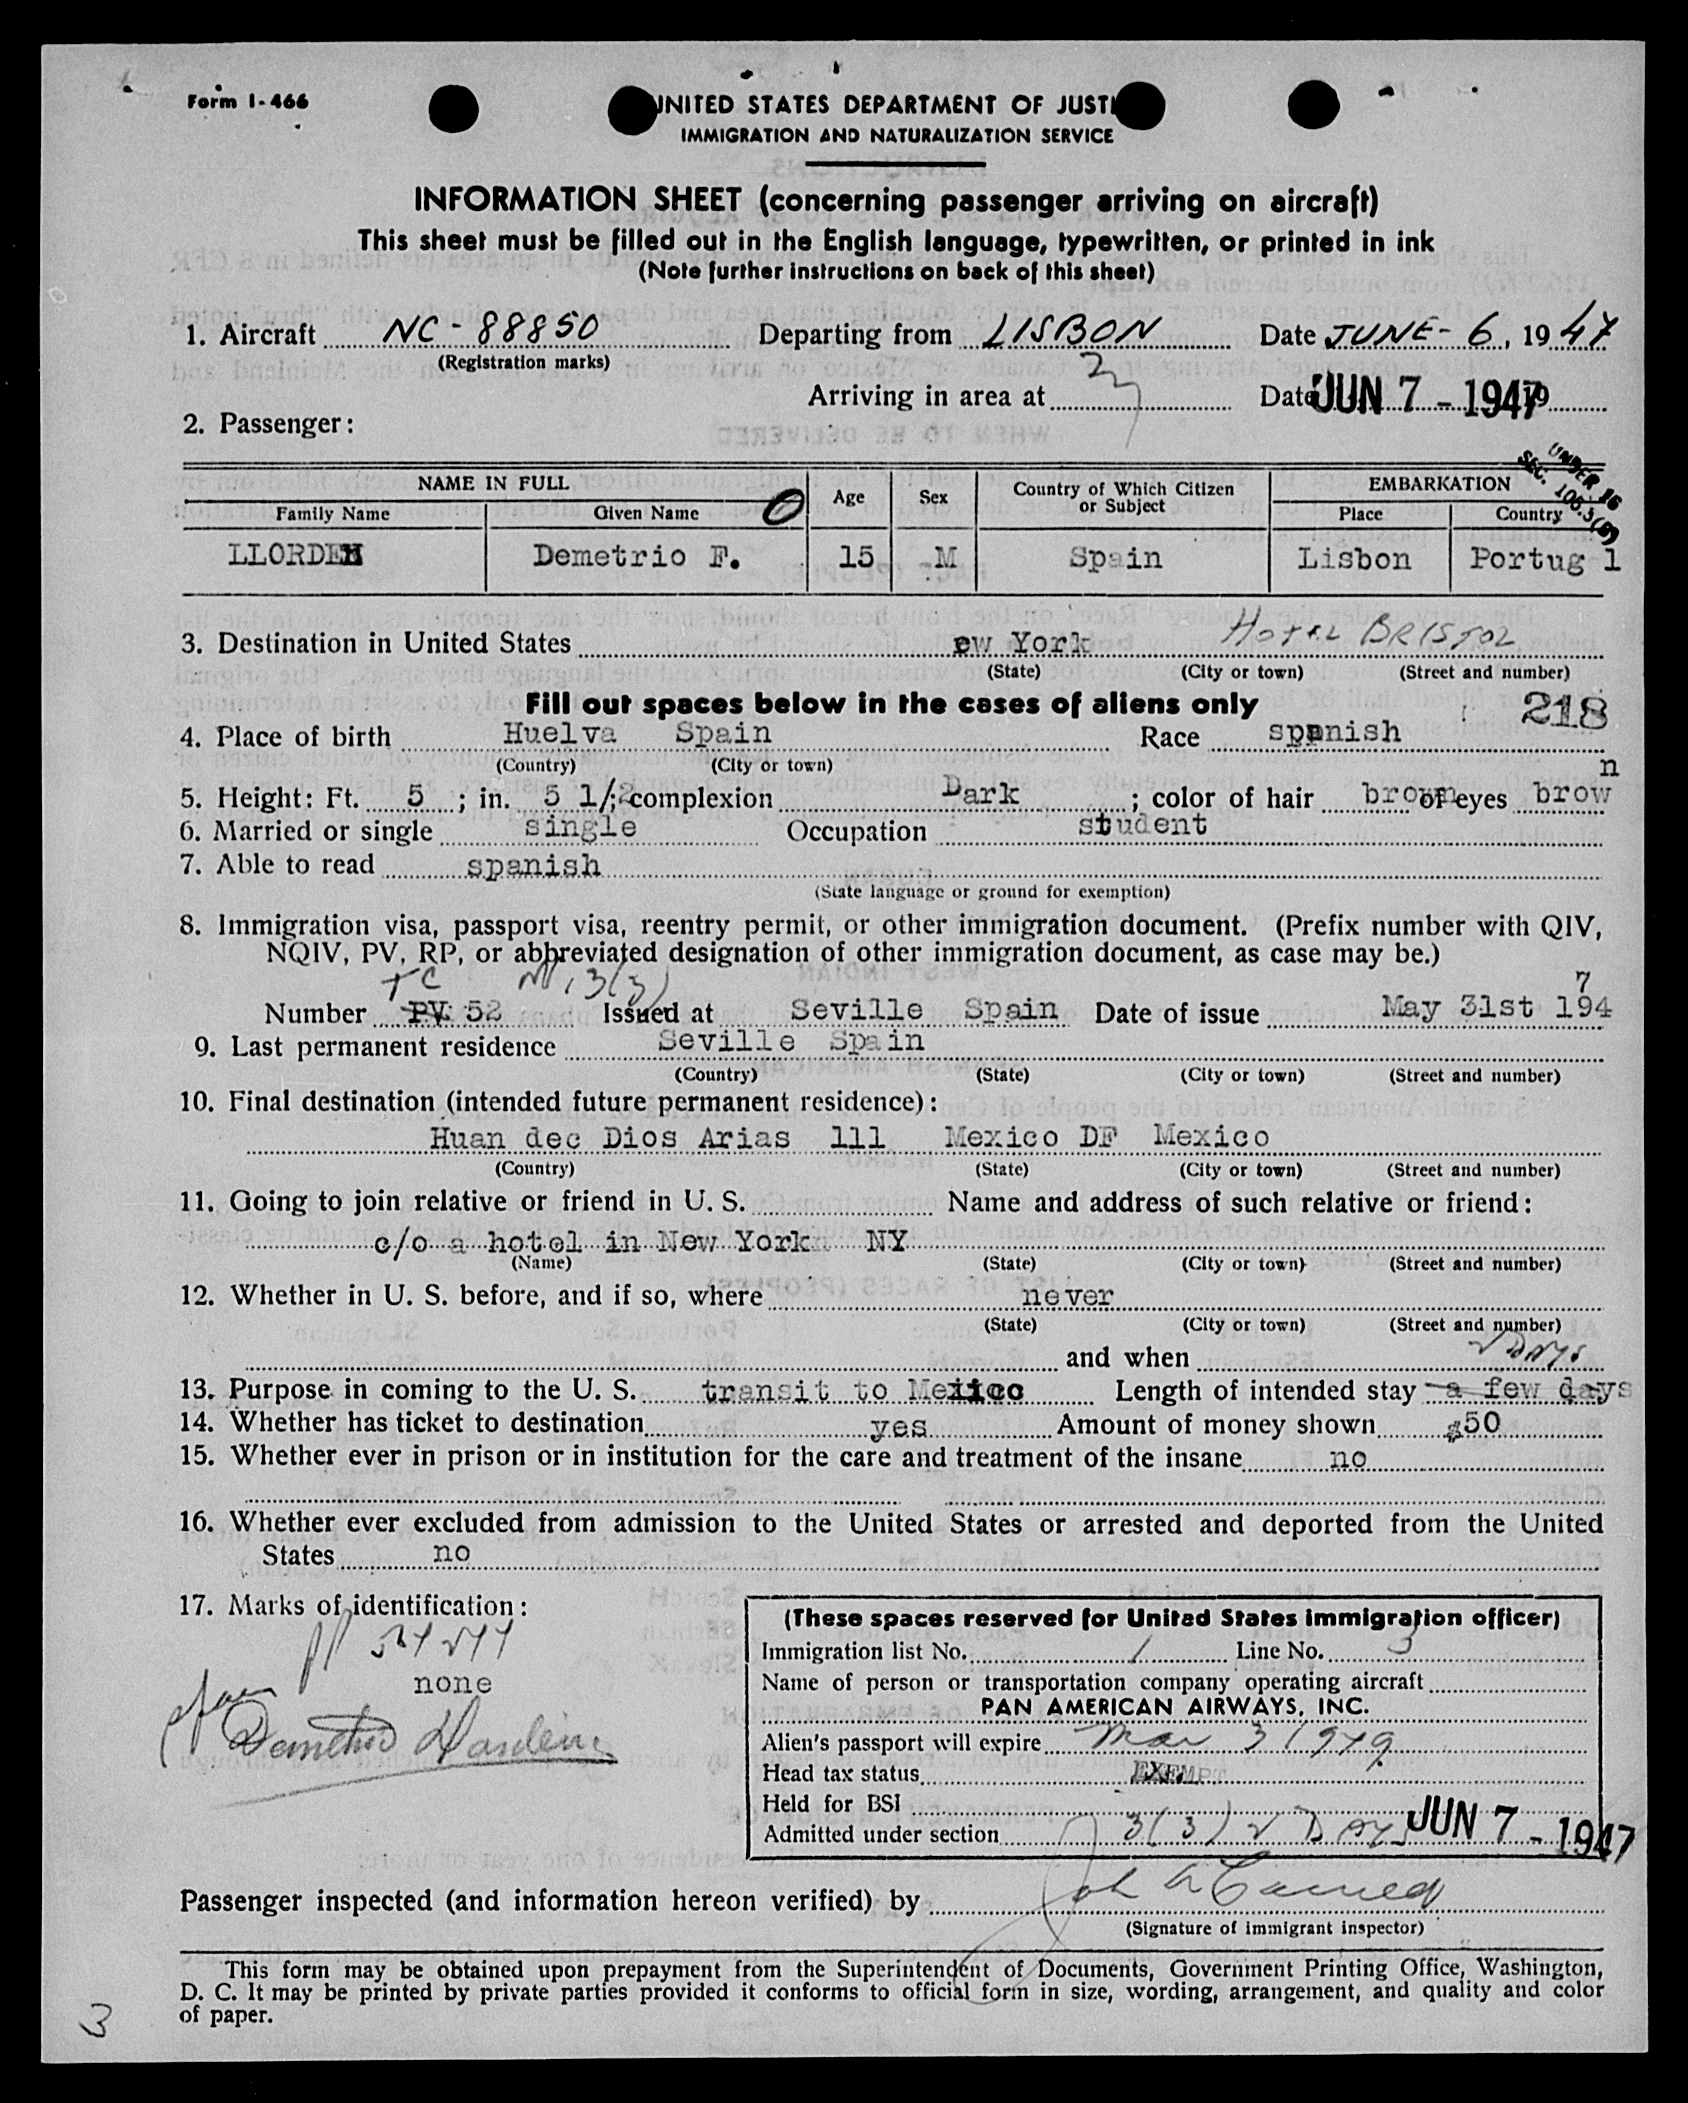 Form I-466
UNITED STATES DEPARTMENT OF JUSTI
IMMIGRATION AND NATURALIZATION SERVICE
INFORMATION SHEET (concerning passenger arriving on aircraft)
This sheet must be filled out in the English language, typewritten, or printed in ink
(Note further instructions on back of this sheet)
1. Aircraft NC-88850 Departing from LISBON Date JUNE-6, 1947
(Registration marks)
Arriving in area at Date JUN 7-1947 19
2. Passenger:
UNDER 16
SEC. 105.3(6)
NAME IN FULL Age Sex Country of Which Citizen or Subject EMBARKATION
Family Name Given Name Place Country
LLORDEN Demetrio F. 15 M Spain Lisbon Portug l
3. Destination in United States ew York HOTEL BRISTOL
(State) (City or town) (Street and number)
Fill out spaces below in the cases of aliens only 218
4. Place of birth Huelva Spain Race spanish
(Country) (City or town)
5. Height: Ft. 5 ; in. 5 1/2; complexion Dark ; color of hair brown of eyes brown
6. Married or single single Occupation student
7. Able to read spanish
(State language or ground for exemption)
8. Immigration visa, passport visa, reentry permit, or other immigration document. (Prefix number with QIV,
NQIV, PV, RP, or abbreviated designation of other immigration document, as case may be.)
TC 3(3)
Number PV 52 Issued at Seville Spain Date of issue May 31st 1947
9. Last permanent residence Seville Spain
(Country) (State) (City or town) (Street and number)
10. Final destination (intended future permanent residence):
Huan dec Dios Arias 111 Mexico DF Mexico
(Country) (State) (City or town) (Street and number)
11. Going to join relative or friend in U. S. Name and address of such relative or friend:
c/o a hotel in New York NY
(Name) (State) (City or town) (Street and number)
12. Whether in U. S. before, and if so, where never
(State) (City or town) (Street and number)
and when
2 DAYS
13. Purpose in coming to the U. S. transit to Mexico Length of intended stay a few days
14. Whether has ticket to destination yes Amount of money shown $50
15. Whether ever in prison or in institution for the care and treatment of the insane no
16. Whether ever excluded from admission to the United States or arrested and deported from the United
States no
17. Marks of identification:
none
(These spaces reserved for United States immigration officer)
Immigration list No. 1 Line No. 3
Name of person or transportation company operating aircraft
PAN AMERICAN AIRWAYS, INC.
Alien's passport will expire Mar 3 1949
Head tax status EXEMPT
Held for BSI
Admitted under section 3(3) 2 DAYS JUN 7-1947
Passenger inspected (and information hereon verified) by
(Signature of immigrant inspector)
This form may be obtained upon prepayment from the Superintendent of Documents, Government Printing Office, Washington,
D. C. It may be printed by private parties provided it conforms to official form in size, wording, arrangement, and quality and color
of paper.
3